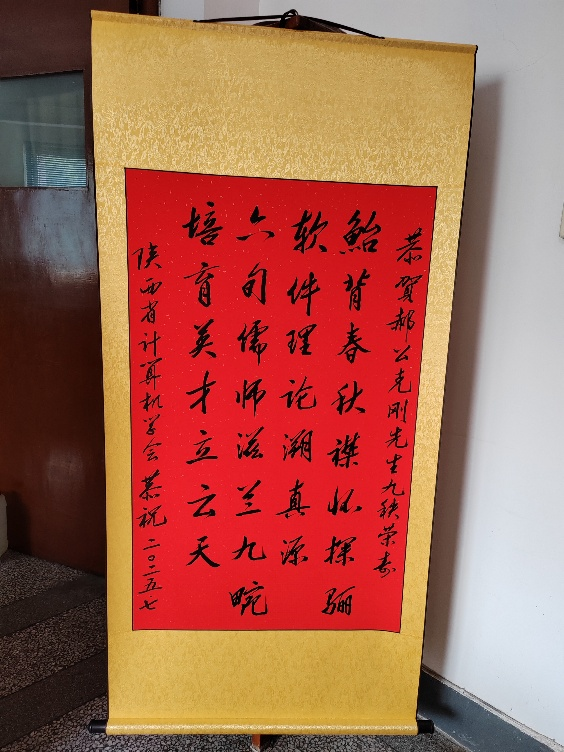 恭贺郝公克刚先生九秩荣寿
鲐背春秋襟怀探骊
软件理论溯真源
六旬儒师滋兰九畹
培育英才立云天
陕西省计算机学会恭祝二〇二五七